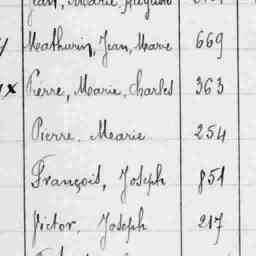 Jean, Marie, Auguste
y Mathurin, Jean, Marie 669
x Pierre, Marie, Charles 363
Pierre. Marie 254
François, Joseph 851
Victor, Joseph 217